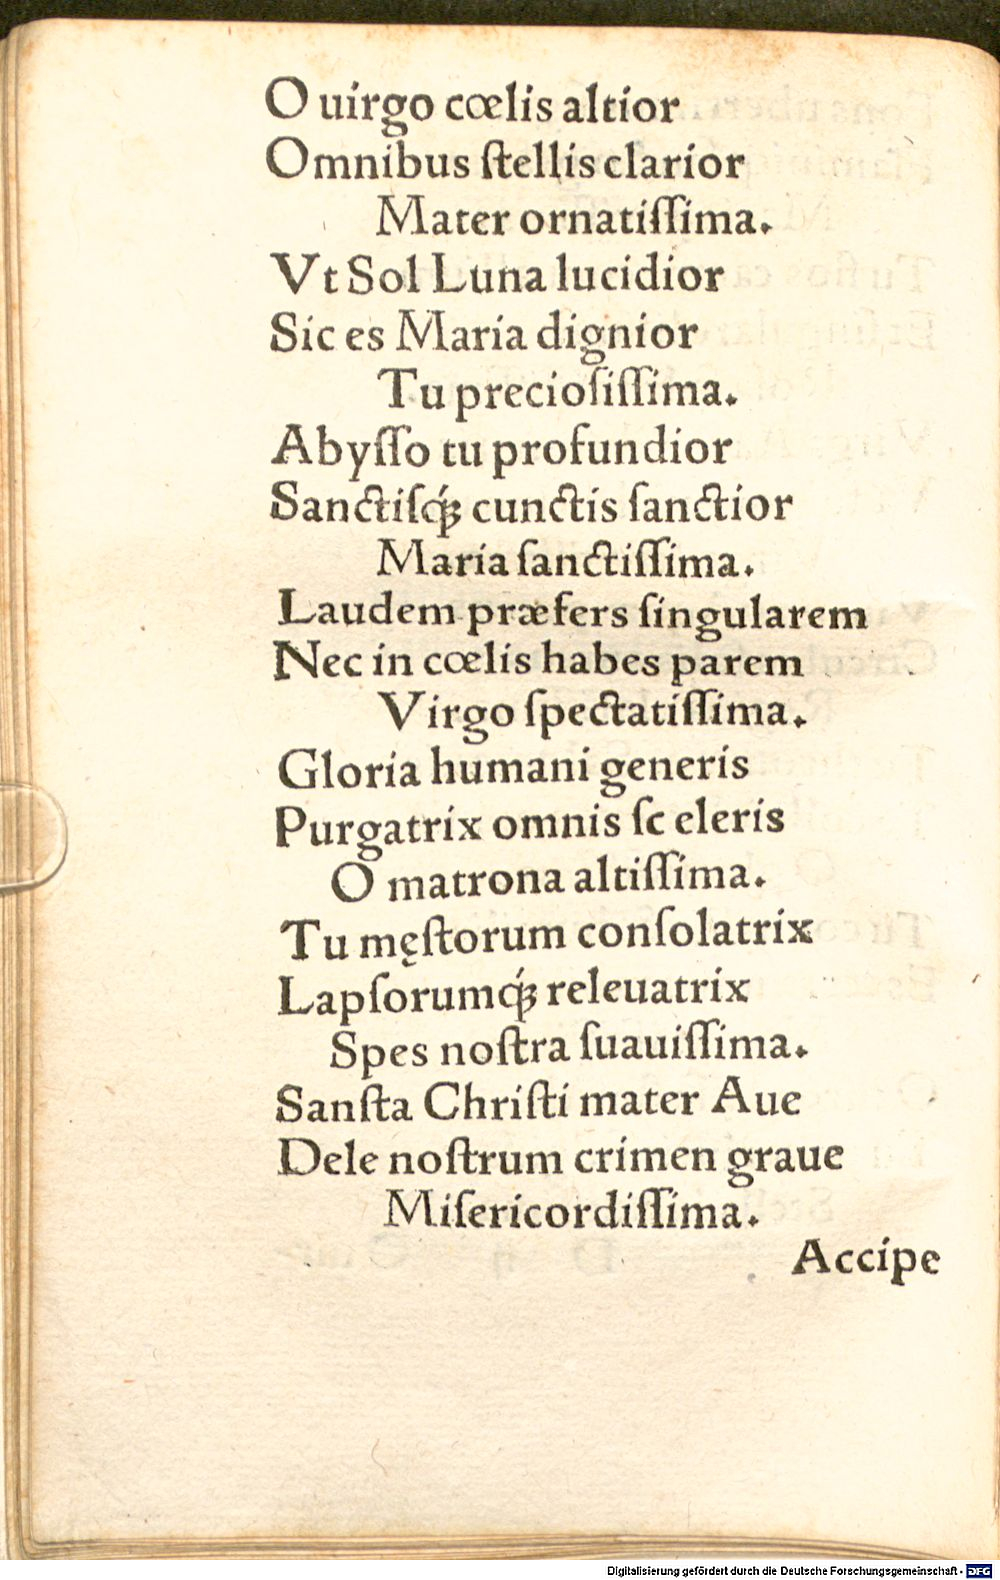 O uirgo cœlis altior
Omnibus ſtellis clarior
Mater ornatiſſima.
Vt Sol Luna lucidior
Sic es Maria dignior
Tu precioſiſſima.
Abyſſo tu profundior
Sanctiſq́ꝫ cunctis ſanctior
Maria ſanctiſſima.
Laudem præfers ſingularem
Nec in cœlis habes parem
Virgo ſpectatiſſima.
Gloria humani generis
Purgatrix omnis ſc eleris
O matrona altiſſima.
Tu męſtorum conſolatrix
Lapſorumq́ꝫ releuatrix
Spes noſtra ſuauiſſima.
Sanſta Chriſti mater Aue
Dele noſtrum crimen graue
Miſericordiſſima.
Accipe
Digitalisierung gefördert durch die Deutsche Forschungsgemeinschaft - DFG